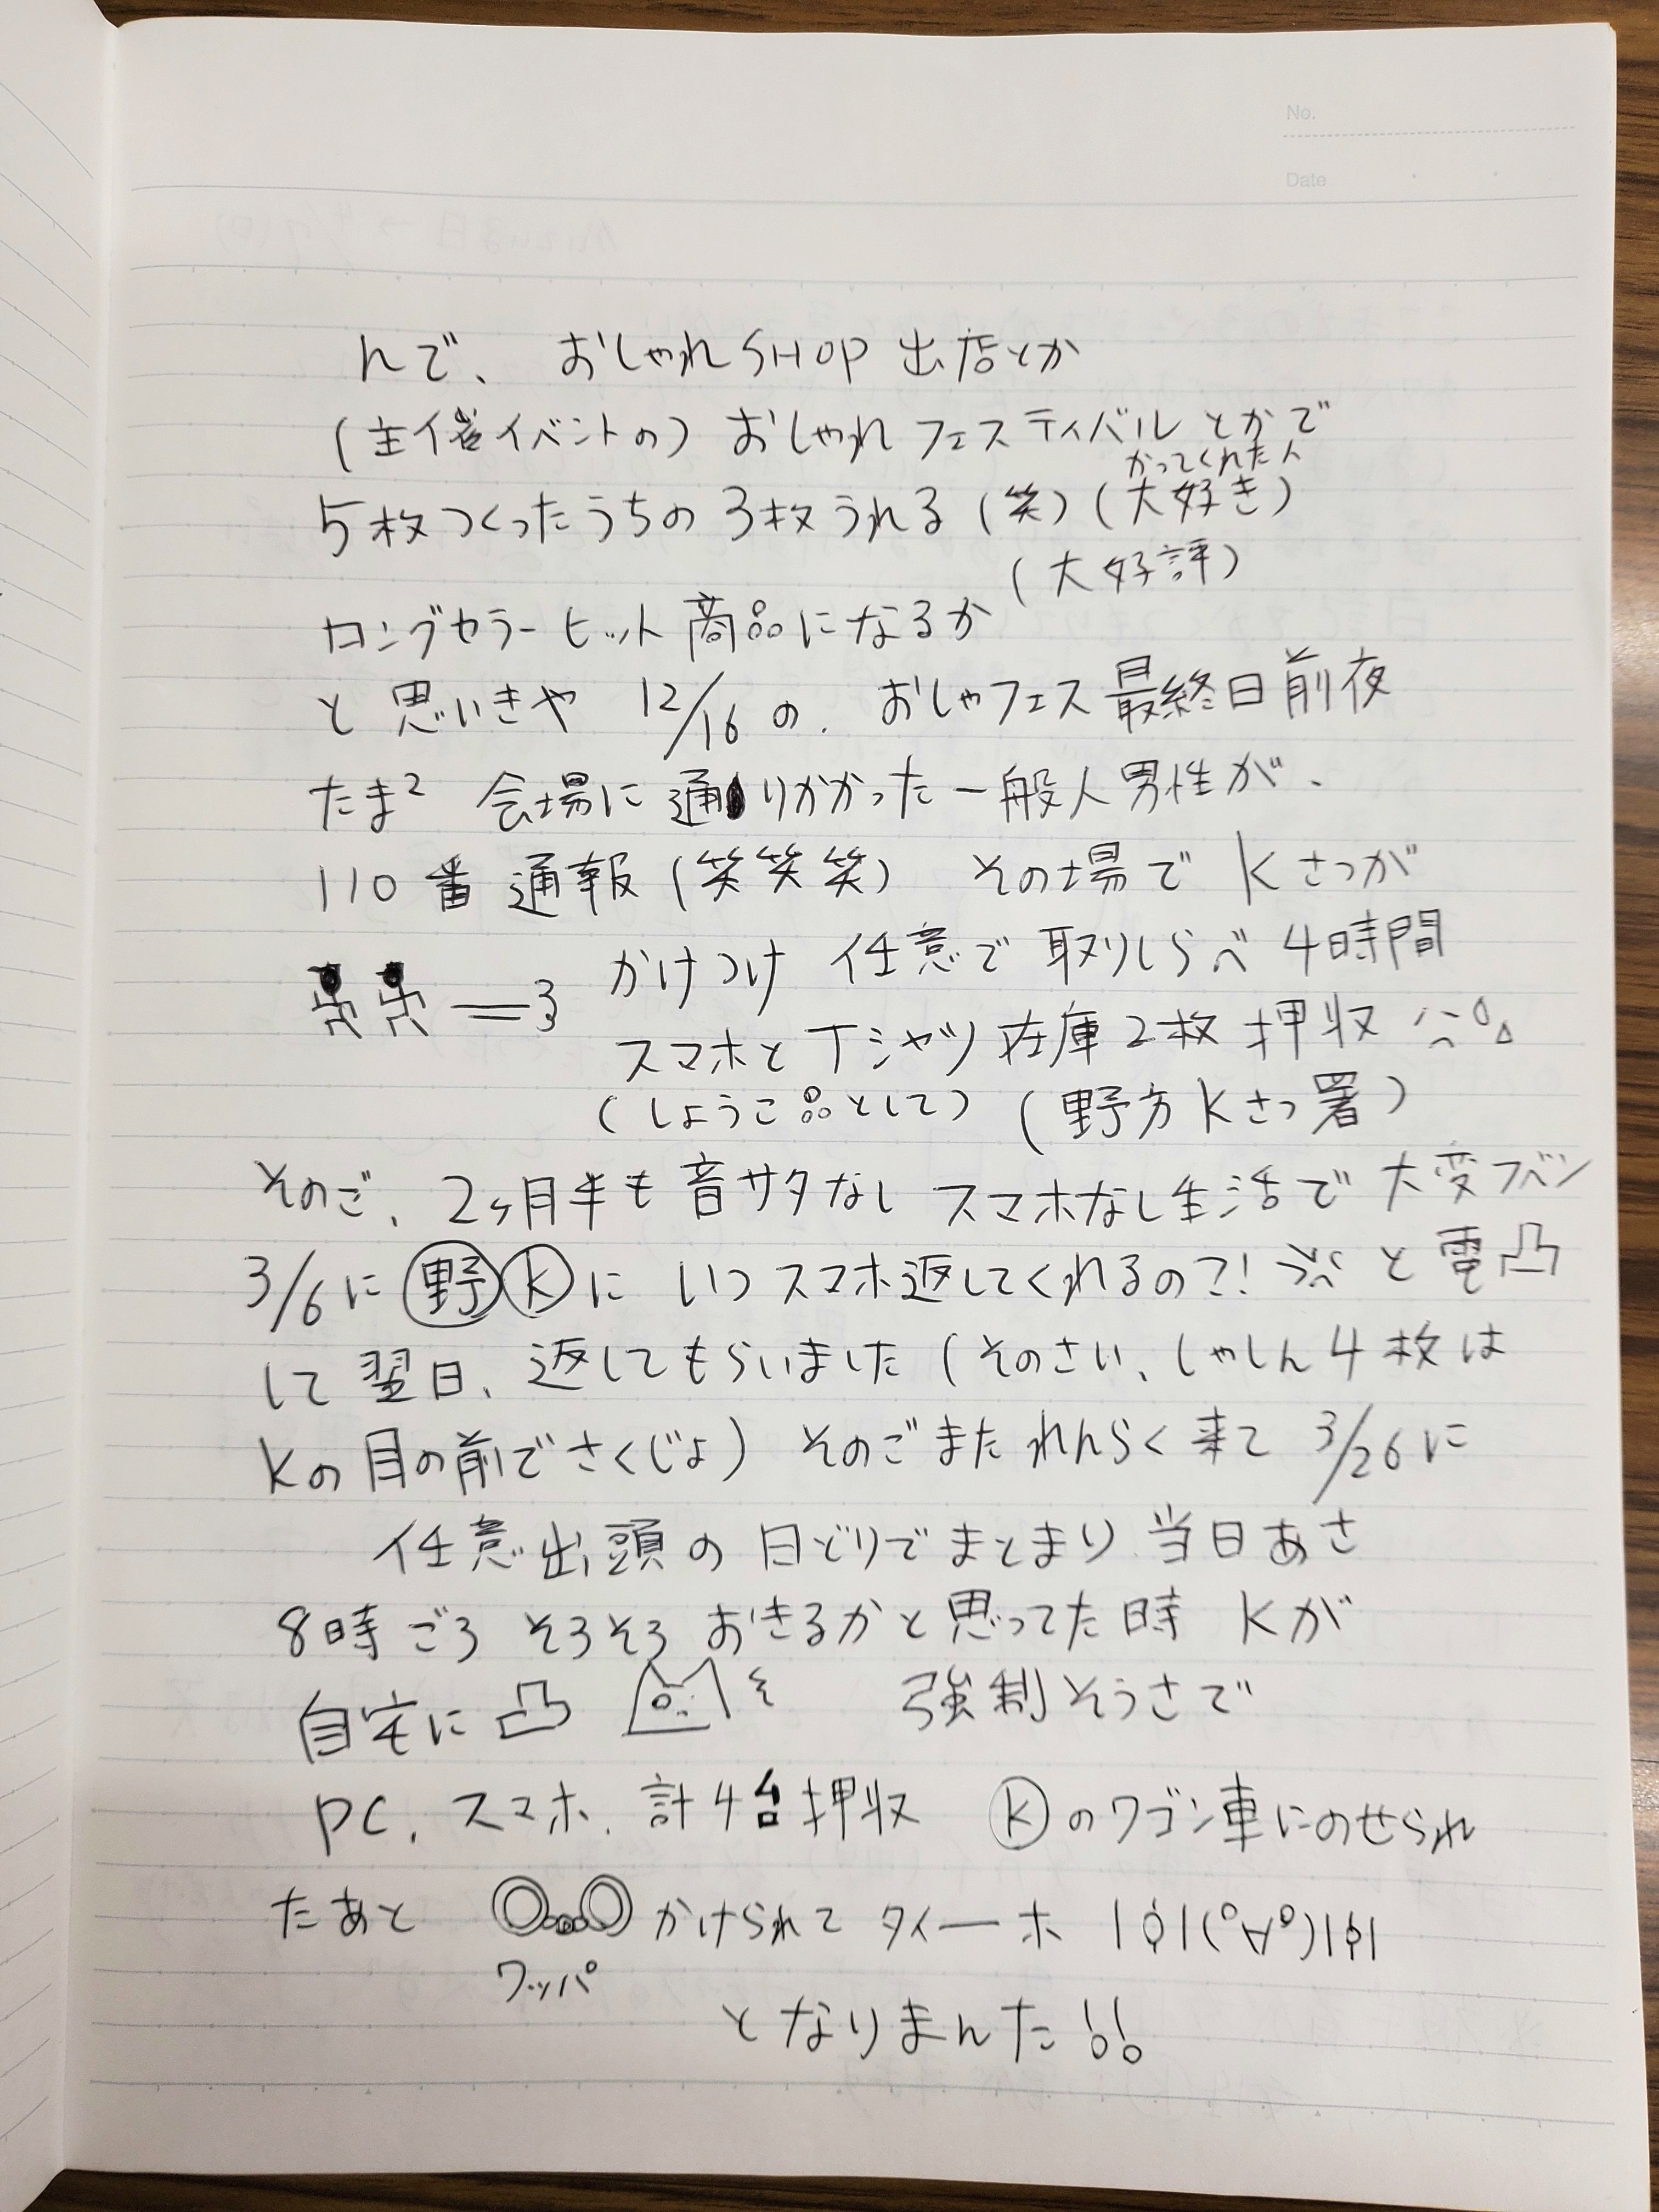 No.
Date
んで、おしゃれSHOP 出店とか
(主催イベントの) おしゃれフェスティバルとかで
かってくれた人
5枚つくったうちの3枚うれる(笑)(大好き)
(大好評)
ロングセラーヒット商品になるか
と思いきや 12/16の、おしゃフェス最終日前夜
たま² 会場に通りかかった一般人男性が、
110番通報(笑笑笑) その場でKさつが
かけつけ 任意で取りしらべ 4時間
スマホとTシャツ在庫2枚押収
(しょうこ品として) (野方Kさつ署)
そのご、2ヶ月半も音サタなし スマホなし生活で大変フベン
3/6に野Kに いつスマホ返してくれるの?! と電凸
して翌日、返してもらいました(そのさい、しゃしん4枚は
Kの目の前でさくじょ) そのごまたれんらく来て 3/26に
任意出頭の日どりでまとまり 当日あさ
8時ごろ そろそろ おきるかと思ってた時 Kが
自宅に凸 強制そうさで
PC、スマホ、計4台押収 Kのワゴン車にのせられ
たあと かけられて タイーホ |φ|(゚∀゚)|φ|
ワッパ
となりまんた!!